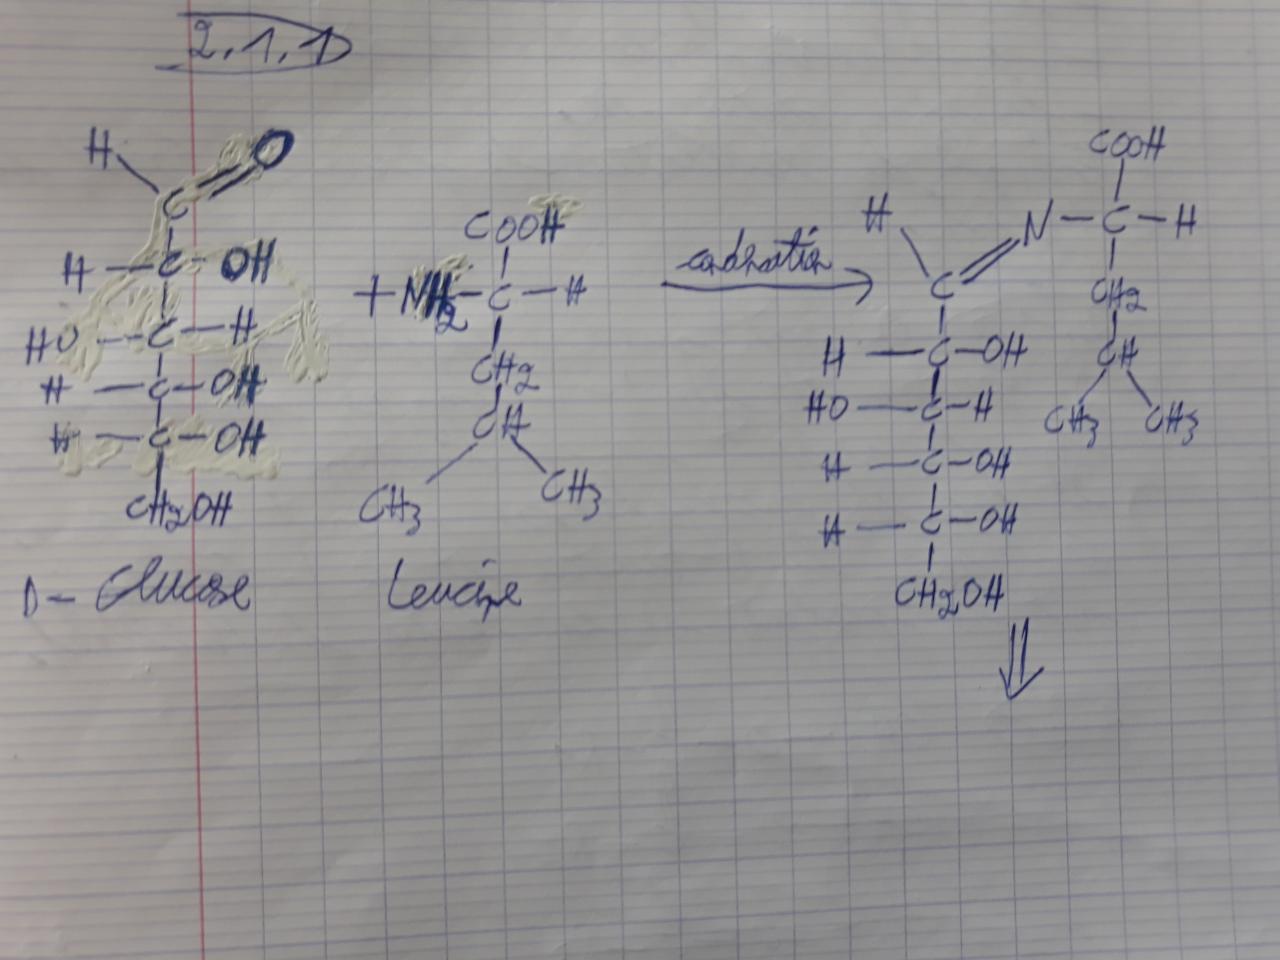 2.1.1
H O
C
H - C - OH
HO - C - H
H - C - OH
H - C - OH
CH2OH
D - Glucose
+
COOH
NH2 - C - H
CH2
CH
CH3 CH3
Leucine
COOH
H N - C - H
C CH2
H - C - OH CH
HO - C - H CH3 CH3
H - C - OH
H - C - OH
CH2OH